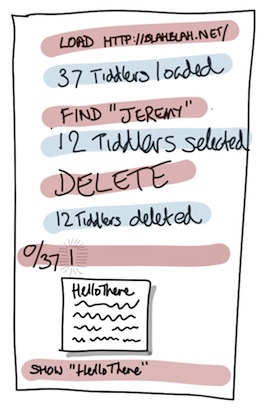 LOAD HTTP://BLAHBLAH.NET/
37 Tiddlers loaded
FIND "JEREMY"
12 Tiddlers selected
DELETE
12 Tiddlers deleted
0/37
HelloThere
SHOW "HelloThere"